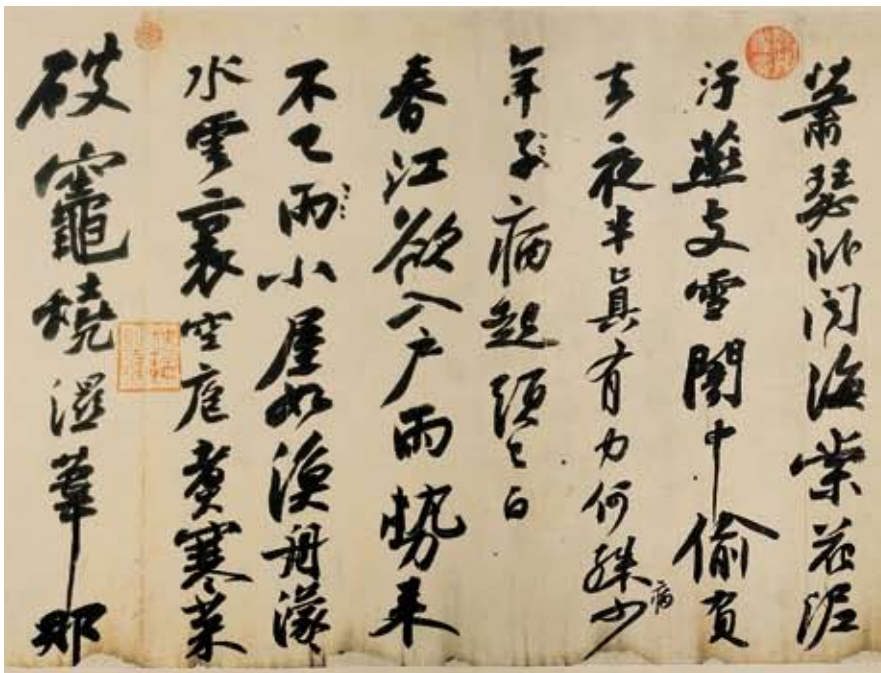 蕭瑟卧聞海棠花泥
汙燕支雪闇中偷負
去夜半真有力何殊病少
年子病起頭已白
春江欲入戶雨勢来
不已雨小屋如漁舟濛〻
水雲裏空庖煑寒菜
破竈燒溼葦那